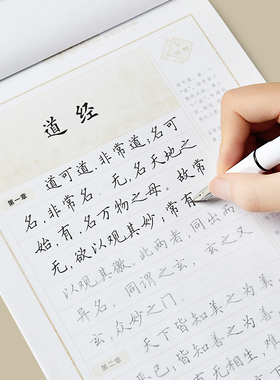 道经
第一章
道可道,非常道;名可
名,非常名。无,名天地之
始,有,名万物之母。故常
无,欲以观其妙;常有
以观其徼。此两者,同出而
异名,同谓之玄,玄之又
玄,众妙之门。
第二章
天下皆知美之为美,
恶已;皆知善之为善
有无相生,难